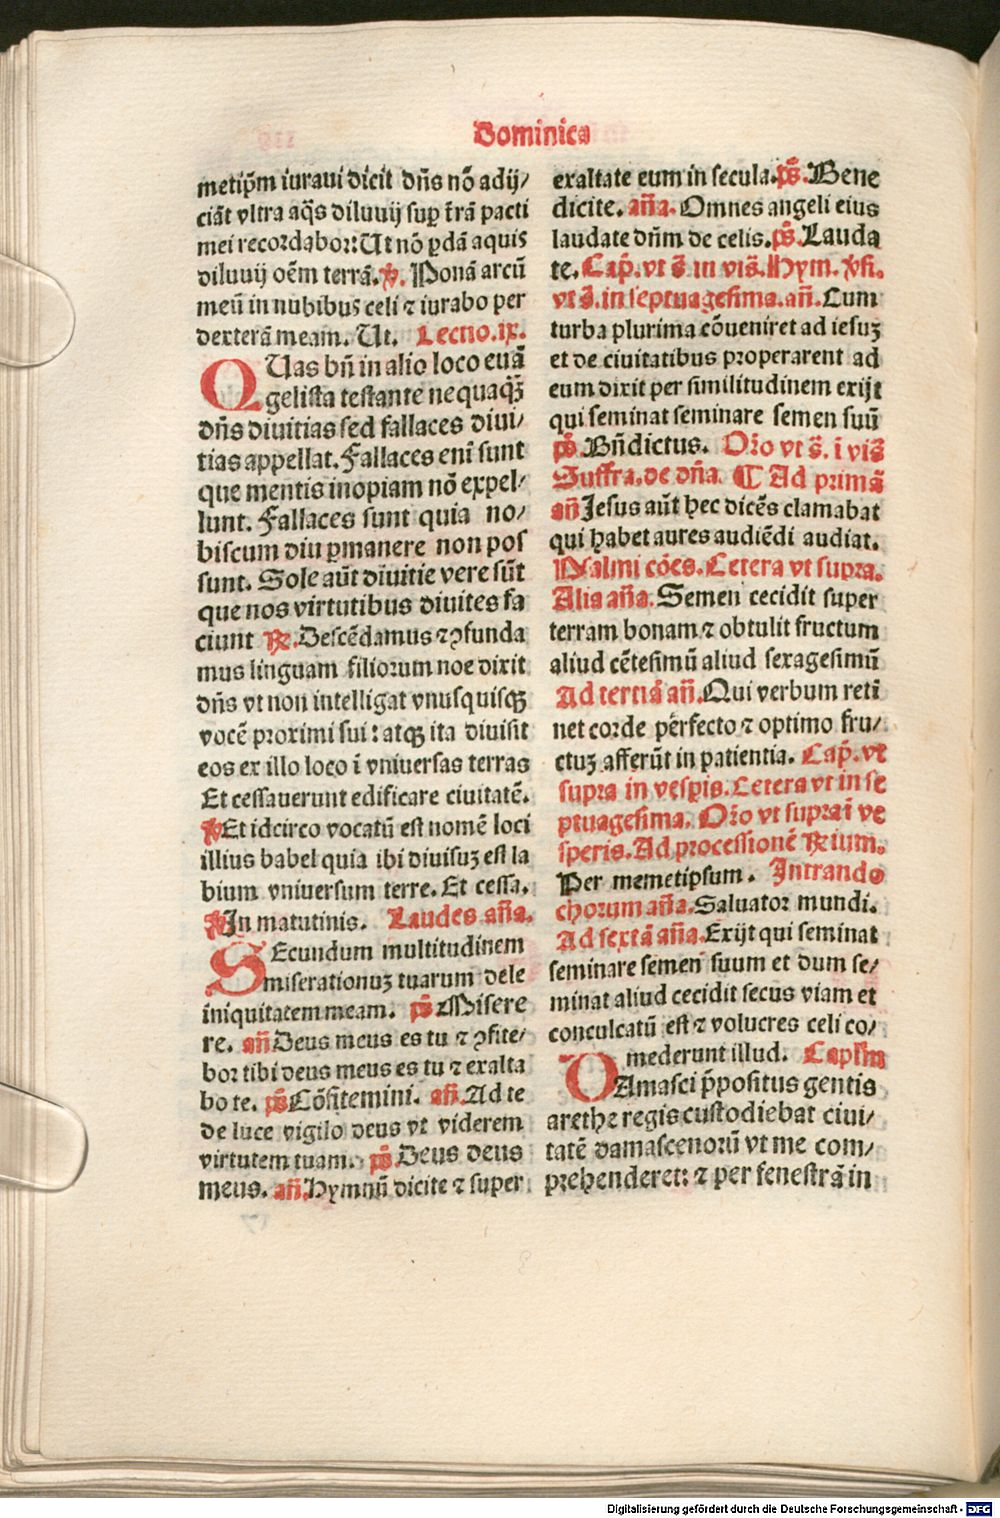 Dominica
metip̄m iuraui dicit dn̄s nō adij/
ciāt vltra aq̄s diluuij sup t̄rā pacti
mei recordabor: Ut nō ꝑdā aquis
diluuij oēm terrā. ℣. Ponā arcū
meū in nubibus celi ⁊ iurabo per
dexterā meam. Ut. Lectio. ix.
QUas bn̄ in alio loco euā
gelista testante nequaq̄ꝫ
dn̄s diuitias sed fallaces diui/
tias appellat. Fallaces enī sunt
que mentis inopiam nō expel/
lunt. Fallaces sunt quia no/
biscum diu ꝑmanere non pos
sunt. Sole aūt diuitie vere sūt
que nos virtutibus diuites fa
ciunt ℞. Descēdamus ⁊ ꝯfunda
mus linguam filiorum noe dixit
dn̄s vt non intelligat vnusquisqꝫ
vocē proximi sui: atqꝫ ita diuisit
eos ex illo loco ī vniuersas terras
Et cessauerunt edificare ciuitatē.
℣ Et idcirco vocatū est nomē loci
illius babel quia ibi diuisuꝫ est la
bium vniuersum terre. Et cessa.
℣ In matutinis. Laudes an̄a.
SEcundum multitudinem
miserationuꝫ tuarum dele
iniquitatem meam. ps̄ Misere
re. an̄ Deus meus es tu ⁊ ꝯfite/
bor tibi deus meus es tu ⁊ exalta
bo te. ps̄ Cōfitemini. an̄. Ad te
de luce vigilo deus vt viderem
virtutem tuam. ps̄ Deus deus
meus. an̄. Hymnū dicite ⁊ super
exaltate eum in secula. ps̄. Bene
dicite. an̄a. Omnes angeli eius
laudate dn̄m de celis. ps̄. Lauda
te. Cap̄. vt s̄. in vis̄. Hym. ℣si.
vt s̄. in septuagesima. an̄. Cum
turba plurima cōueniret ad iesuꝫ
et de ciuitatibus properarent ad
eum dixit per similitudinem exijt
qui seminat seminare semen suū
ps̄. Bn̄dictus. Or̄o vt s̄. ī vis̄
Suffra. de dn̄a. ¶ Ad primā
an̄ Jesus aūt hec dicēs clamabat
qui habet aures audiēdi audiat.
Psalmi cōes. Cetera vt supra.
Alia an̄a. Semen cecidit super
terram bonam ⁊ obtulit fructum
aliud cētesimū aliud sexagesimū
Ad tertiā an̄. Qui verbum reti
net corde perfecto ⁊ optimo fru/
ctuꝫ afferūt in patientia. Cap̄. vt
supra in vesꝑis. Cetera vt in se
ptuagesima. Or̄o vt supra ī ve
speris. Ad processionē ℞ium.
Per memetipsum. Intrando
chorum an̄a. Saluator mundi.
Ad sextā an̄a. Exijt qui seminat
seminare semen suum et dum se/
minat aliud cecidit secus viam et
conculcatū est ⁊ volucres celi co/
mederunt illud. Capl̄m
DAmasci p̄positus gentis
arethe regis custodiebat ciui/
tatē damascenorū vt me com/
prehenderet: ⁊ per fenestrā in
Digitalisierung gefördert durch die Deutsche Forschungsgemeinschaft - DFG